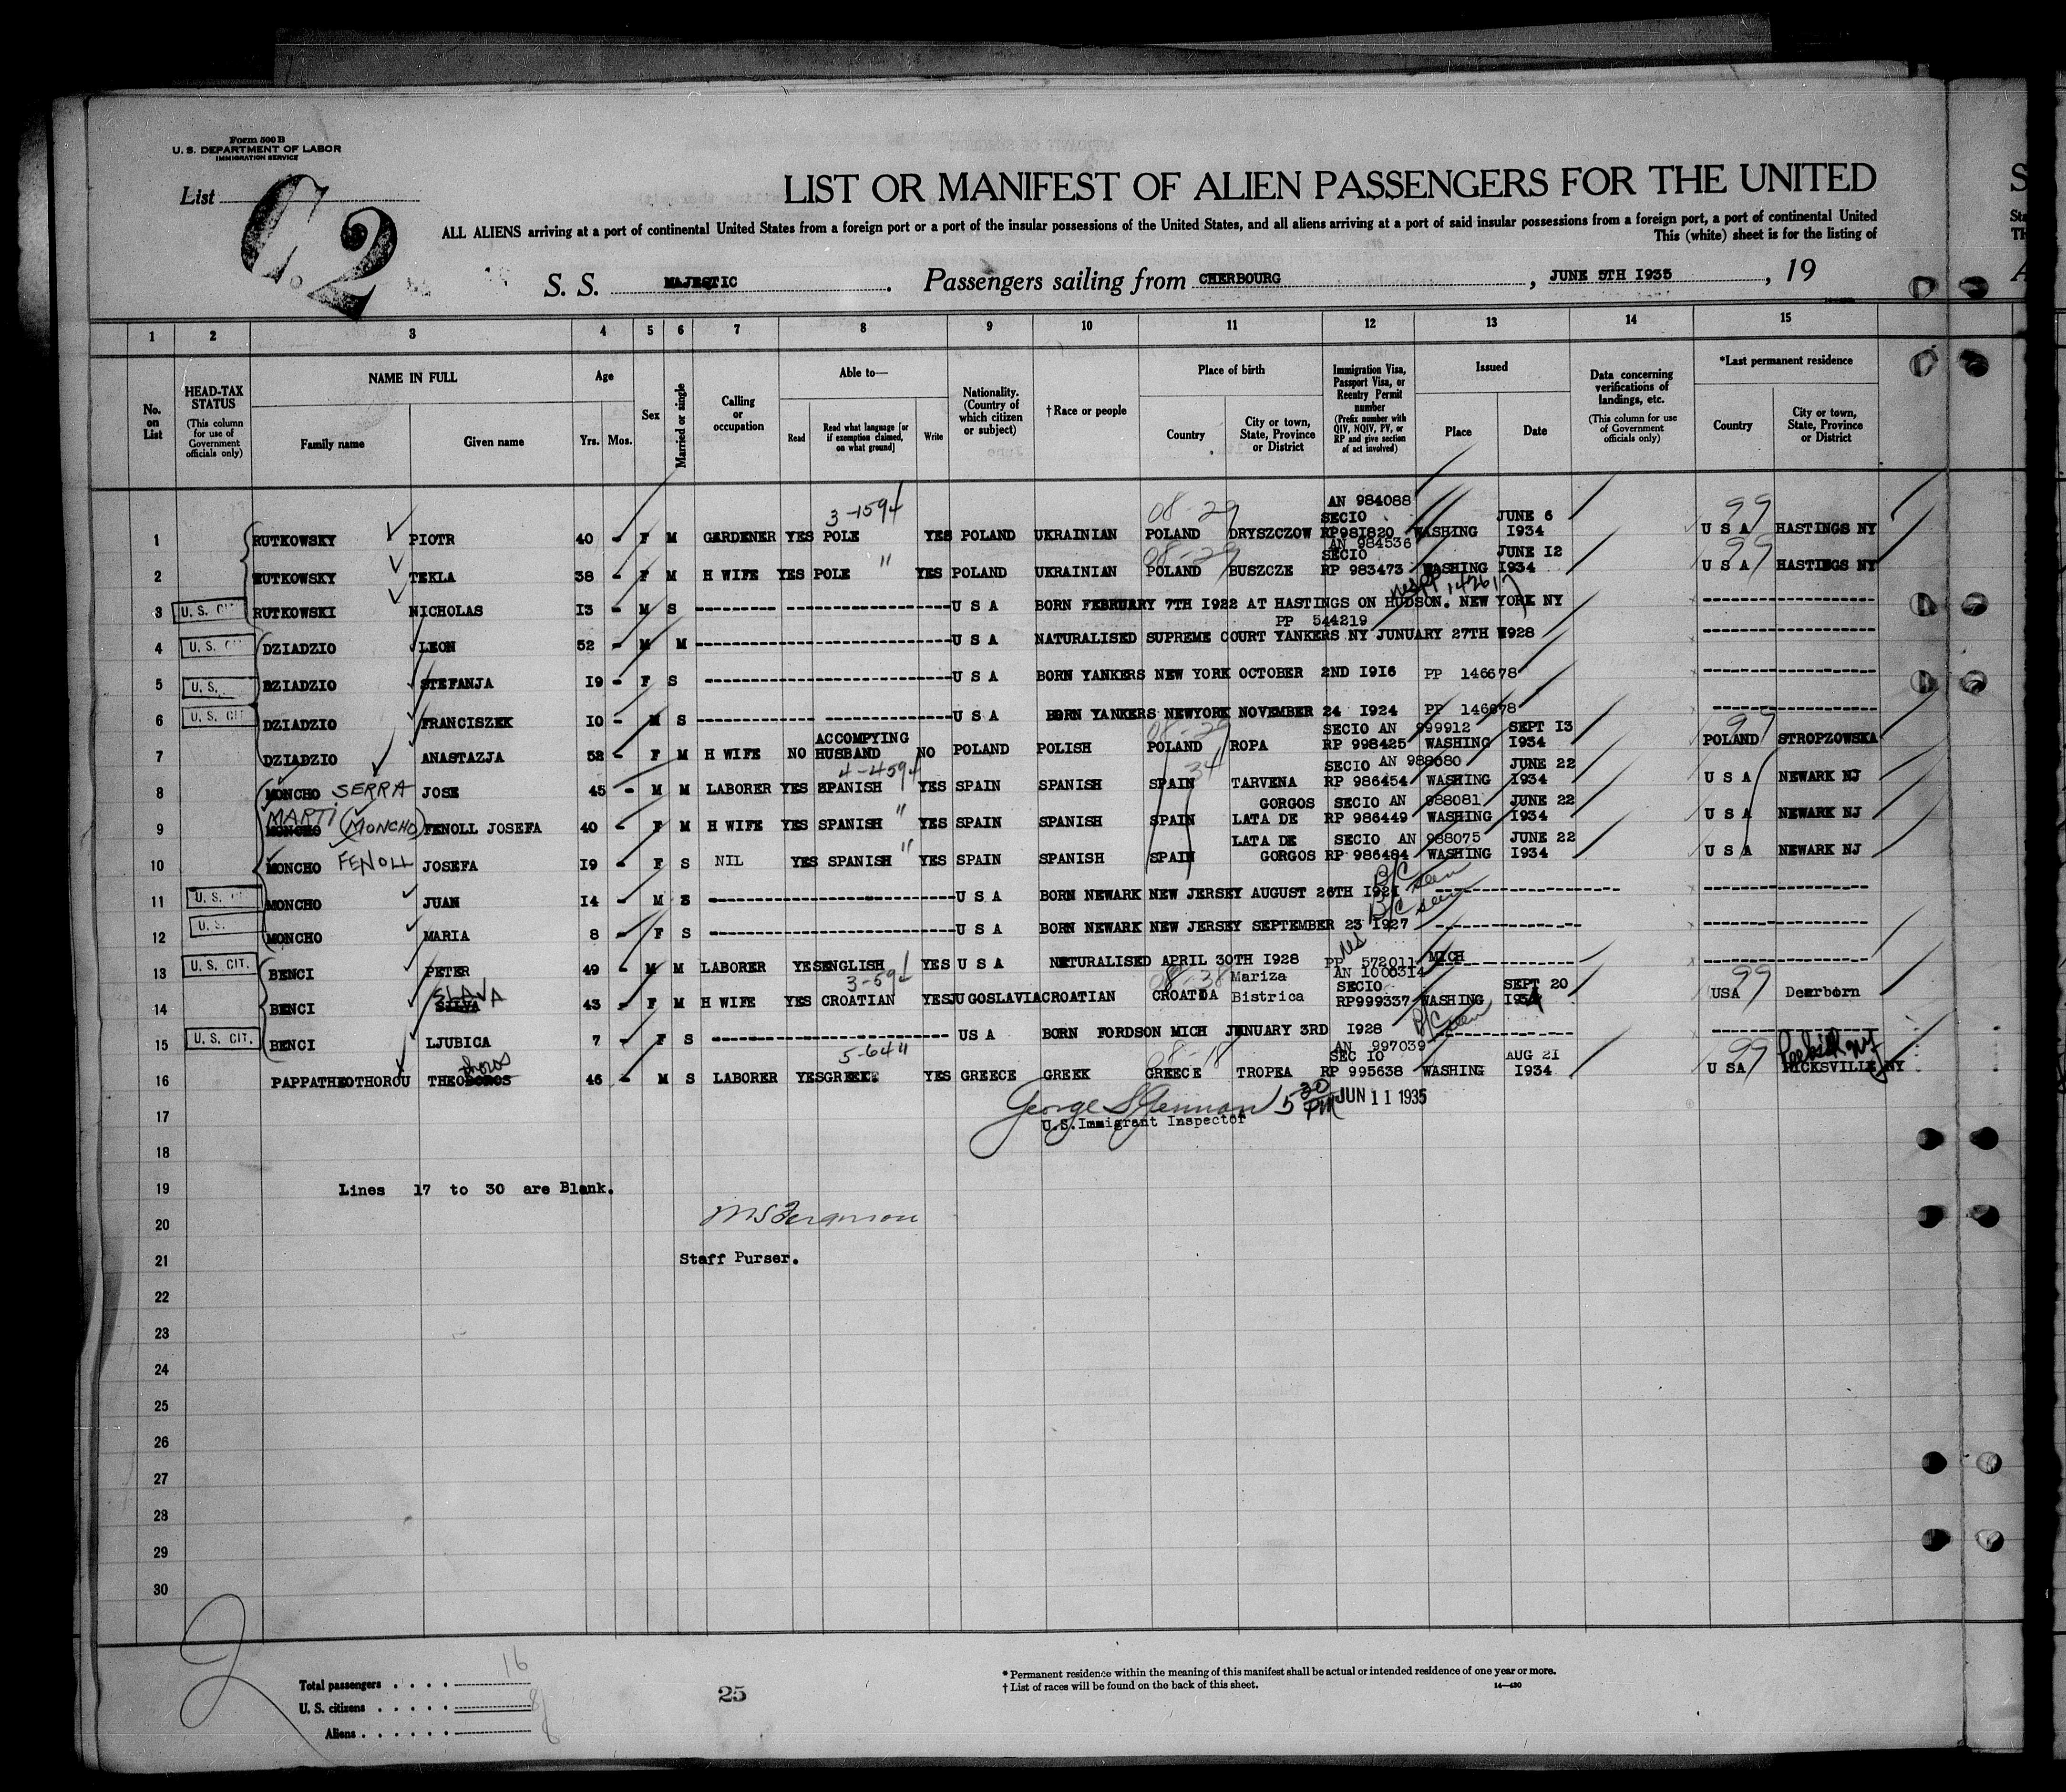 Form 500 B
U. S. DEPARTMENT OF LABOR
IMMIGRATION SERVICE
List
C. 2
LIST OR MANIFEST OF ALIEN PASSENGERS FOR THE UNITED
ALL ALIENS arriving at a port of continental United States from a foreign port or a port of the insular possessions of the United States, and all aliens arriving at a port of said insular possessions from a foreign port, a port of continental United
This (white) sheet is for the listing of
S. S. MAJESTIC . Passengers sailing from CHERBOURG , JUNE 5TH I935 , 19
1 2 3 4 5 6 7 8 9 10 11 12 13 14 15
No. on List
HEAD-TAX STATUS (This column for use of Government officials only)
NAME IN FULL Family name Given name
Age Yrs. Mos.
Sex
Married or single
Calling or occupation
Able to— Read Read what language [or if exemption claimed, on what ground] Write
Nationality. (Country of which citizen or subject)
† Race or people
Place of birth Country City or town, State, Province or District
Immigration Visa, Passport Visa, or Reentry Permit number (Prefix number with QIV, NQIV, PV, or RP and give section of act involved)
Issued Place Date
Data concerning verifications of landings, etc. (This column for use of Government officials only)
*Last permanent residence Country City or town, State, Province or District
3-1594 08-29 AN 984088 SECIO JUNE 6 99
1 RUTKOWSKY PIOTR 40 - F M GERDENER YES POLE YES POLAND UKRAINIAN POLAND DRYSZCZOW RP981820 WASHING I934 U S A HASTINGS NY
" 08-29 AN 984536 SECIO JUNE I2 99
2 RUTKOWSKY TEKLA 38 - F M H WIFE YES POLE YES POLAND UKRAINIAN POLAND BUSZCZE RP 983473 WASHING I934 U S A HASTINGS NY
3 U. S. CIT RUTKOWSKI NICHOLAS I3 - M S U S A BORN FEBRUARY 7TH I922 AT HASTINGS ON HUDSON. NEW YORK NY
PP 544219
4 U. S. DZIADZIO LEON 52 - M M U S A NATURALISED SUPREME COURT YANKERS NY JUNUARY 27TH 928
5 U. S. DZIADZIO STEFANJA I9 - F S U S A BORN YANKERS NEW YORK OCTOBER 2ND I9I6 PP 146678
6 U. S. CIT DZIADZIO FRANCISZEK I0 - M S U S A BORN YANKERS NEWYORK NOVEMBER 24 I924 PP 146678
ACCOMPYING 08-29 SECIO AN 999912 SEPT I3 99
7 DZIADZIO ANASTAZJA 52 - F M H WIFE NO HUSBAND NO POLAND POLISH POLAND ROPA RP 998425 WASHING I934 POLAND STROPZOWSKA
4-4594 34 SECIO AN 988680 JUNE 22
8 MONCHO SERRA JOSE 45 - M M LABORER YES SPANISH YES SPAIN SPANISH SPAIN TARVENA RP 986454 WASHING I934 U S A NEWARK NJ
MARTI " GORGOS SECIO AN 988081 JUNE 22
9 MONCHO (MONCHO) FENOLL JOSEFA 40 - F M H WIFE YES SPANISH YES SPAIN SPANISH SPAIN LATA DE RP 986449 WASHING I934 U S A NEWARK NJ
" LATA DE SECIO AN 988075 JUNE 22
10 MONCHO FENOLL JOSEFA I9 - F S NIL YES SPANISH YES SPAIN SPANISH SPAIN GORGOS RP 986484 WASHING I934 U S A NEWARK NJ
B/C seen
11 U. S. MONCHO JUAN I4 - M S U S A BORN NEWARK NEW JERSEY AUGUST 26TH I921
B/C seen
12 U. S. MONCHO MARIA 8 - F S U S A BORN NEWARK NEW JERSEY SEPTEMBER 23 I927
13 U. S. CIT. BENCI PETER 49 - M M LABORER YES ENGLISH YES U S A NETURALISED APRIL 30TH I928 PP 572011 MICH
SLAVA 3-594 08-38 Mariza AN 1000314 SECIO SEPT 20 99
14 BENCI 43 - F M H WIFE YES CROATIAN YES JUGOSLAVIA CROATIAN CROATIA Bistrica RP999337 WASHING I934 USA Dearborn
B/C seen
15 U. S. CIT. BENCI LJUBICA 7 - F S US A BORN FORDSON MICH JUNUARY 3RD I928
thoros 5-64 " 08-18 AN 997039 SEC IO AUG 2I 99 Peekskill NY
16 PAPPATHEOTHOROU THEODOROS 46 - M S LABORER YES GREEK YES GREECE GREEK GREECE TROPEA RP 995638 WASHING I934 U SA HICKSVILLE NY
5 30 PM JUN 11 1935
17 U.S.Immigrant Inspector
18
19 Lines 17 to 30 are Blank.
20 M S Ferguson
21 Staff Purser.
22
23
24
25
26
27
28
29
30
Total passengers . . . . 16
U. S. citizens . . . . . 8
Aliens . . . . . . 8
25
* Permanent residence within the meaning of this manifest shall be actual or intended residence of one year or more.
† List of races will be found on the back of this sheet.
14—430